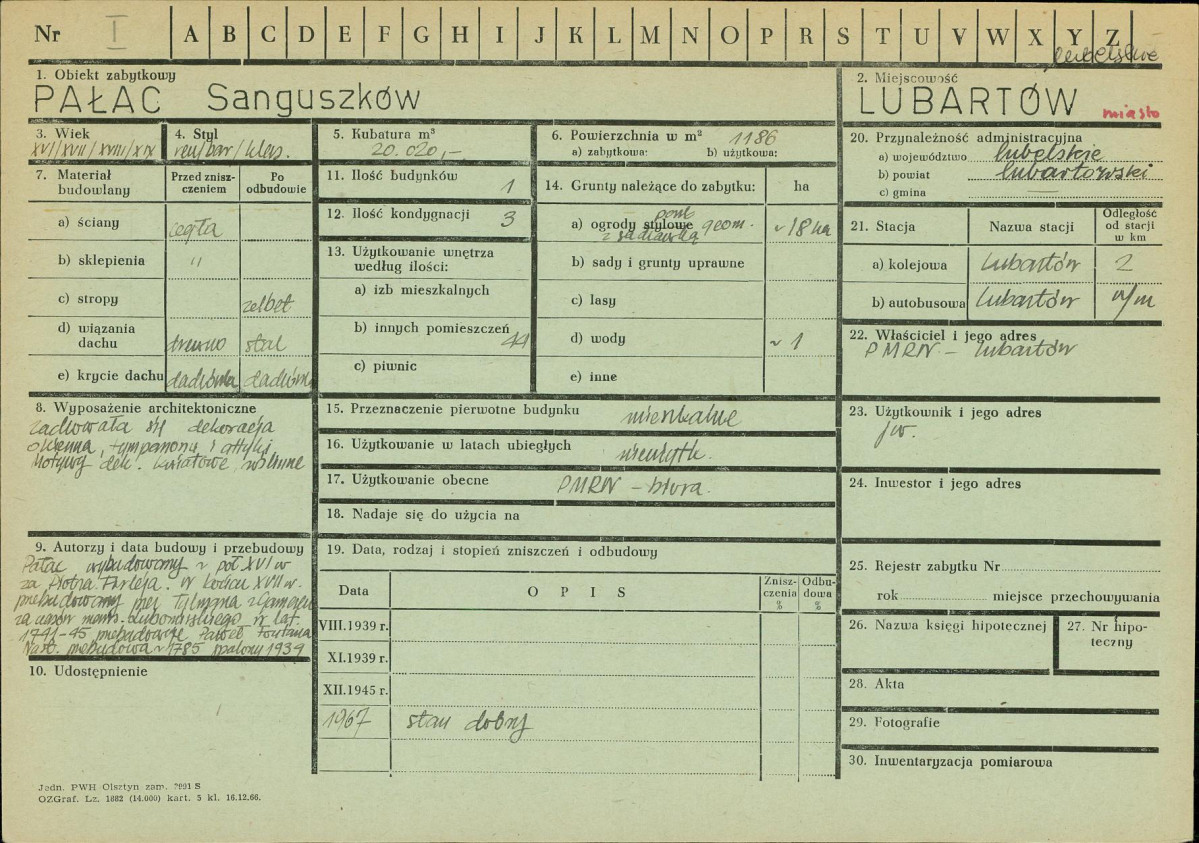 Nr I A B C D E F G H I J K L M N O P R S T U V W X Y Z
lubelskie
1. Obiekt zabytkowy
PAŁAC Sanguszków
2. Miejscowość
LUBARTÓW miasto
3. Wiek
XVI/XVII/XVIII/XIX
4. Styl
ren/bar/klas.
5. Kubatura m³
20.020,-
6. Powierzchnia w m² 1186
a) zabytkowa: b) użytkowa:
7. Materiał budowlany
Przed zniszczeniem
Po odbudowie
a) ściany cegła
b) sklepienia "
c) stropy żelbet
d) wiązania dachu drewno stal
e) krycie dachu dachówka dachówka
8. Wyposażenie architektoniczne
zachowała się dekoracja
okienna, tympanony i attyki
Motywy dek. kwiatowe roślinne
9. Autorzy i data budowy i przebudowy
Pałac wybudowany w poł XVI w
za Piotra Firleja. W końcu XVII w.
przebudowany przez Tylmana z Gameren
za czasów marsz. Lubomirskiego w lat.
1741-45 przebudowuje Paweł Fontana
Nast. przebudowa w 1785 spalony 1939
10. Udostępnienie
11. Ilość budynków 1
12. Ilość kondygnacji 3
13. Użytkowanie wnętrza
według ilości:
a) izb mieszkalnych
b) innych pomieszczeń 44
c) piwnic
14. Grunty należące do zabytku: ha
a) ogrody stylowe park geom. ~18 ha
z sadzawką
b) sady i grunty uprawne
c) lasy
d) wody ~ 1
e) inne
15. Przeznaczenie pierwotne budynku mieszkalne
16. Użytkowanie w latach ubiegłych nieużytk.
17. Użytkowanie obecne PMRN - biura.
18. Nadaje się do użycia na
19. Data, rodzaj i stopień zniszczeń i odbudowy
Data
O P I S
Zniszczenia %
Odbudowa %
VIII.1939 r.
XI.1939 r.
XII.1945 r.
1967 stan dobry
20. Przynależność administracyjna
a) województwo lubelskie
b) powiat lubartowski
c) gmina —
21. Stacja
Nazwa stacji
Odległość od stacji w km
a) kolejowa Lubartów 2
b) autobusowa Lubartów w/m
22. Właściciel i jego adres
PMRN - Lubartów
23. Użytkownik i jego adres
jw.
24. Inwestor i jego adres
25. Rejestr zabytku Nr
rok miejsce przechowywania
26. Nazwa księgi hipotecznej
27. Nr hipoteczny
28. Akta
29. Fotografie
30. Inwentaryzacja pomiarowa
Jedn. PWH Olsztyn zam. 2991 S
OZGraf. Lz. 1882 (14.000) kart. 5 kl. 16.12.66.